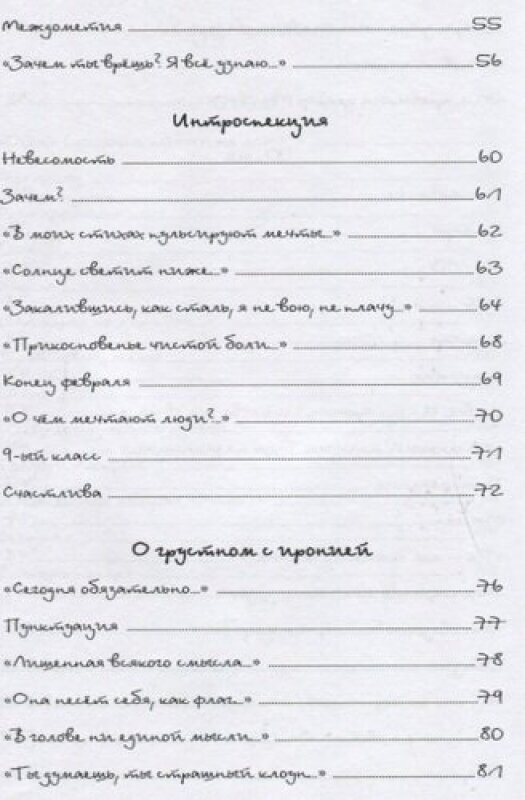 Междометия 55
«Зачем ты врёшь? Я всё узнаю...» 56
Интроспекция
Невесомость 60
Зачем? 61
«В моих стихах пульсируют мечты...» 62
«Солнце светит ниже...» 63
«Закалившись, как сталь, я не вою, не плачу...» 64
«Прикосновенье чистой боли...» 68
Конец февраля 69
«О чём мечтают люди?..» 70
9-ый класс 71
Счастлива 72
О грустном с иронией
«Сегодня обязательно...» 76
Пунктуация 77
«Лишенная всякого смысла...» 78
«Она несёт себя, как флаг...» 79
«В голове ни единой мысли...» 80
«Ты думаешь, ты страшный клоун...» 81